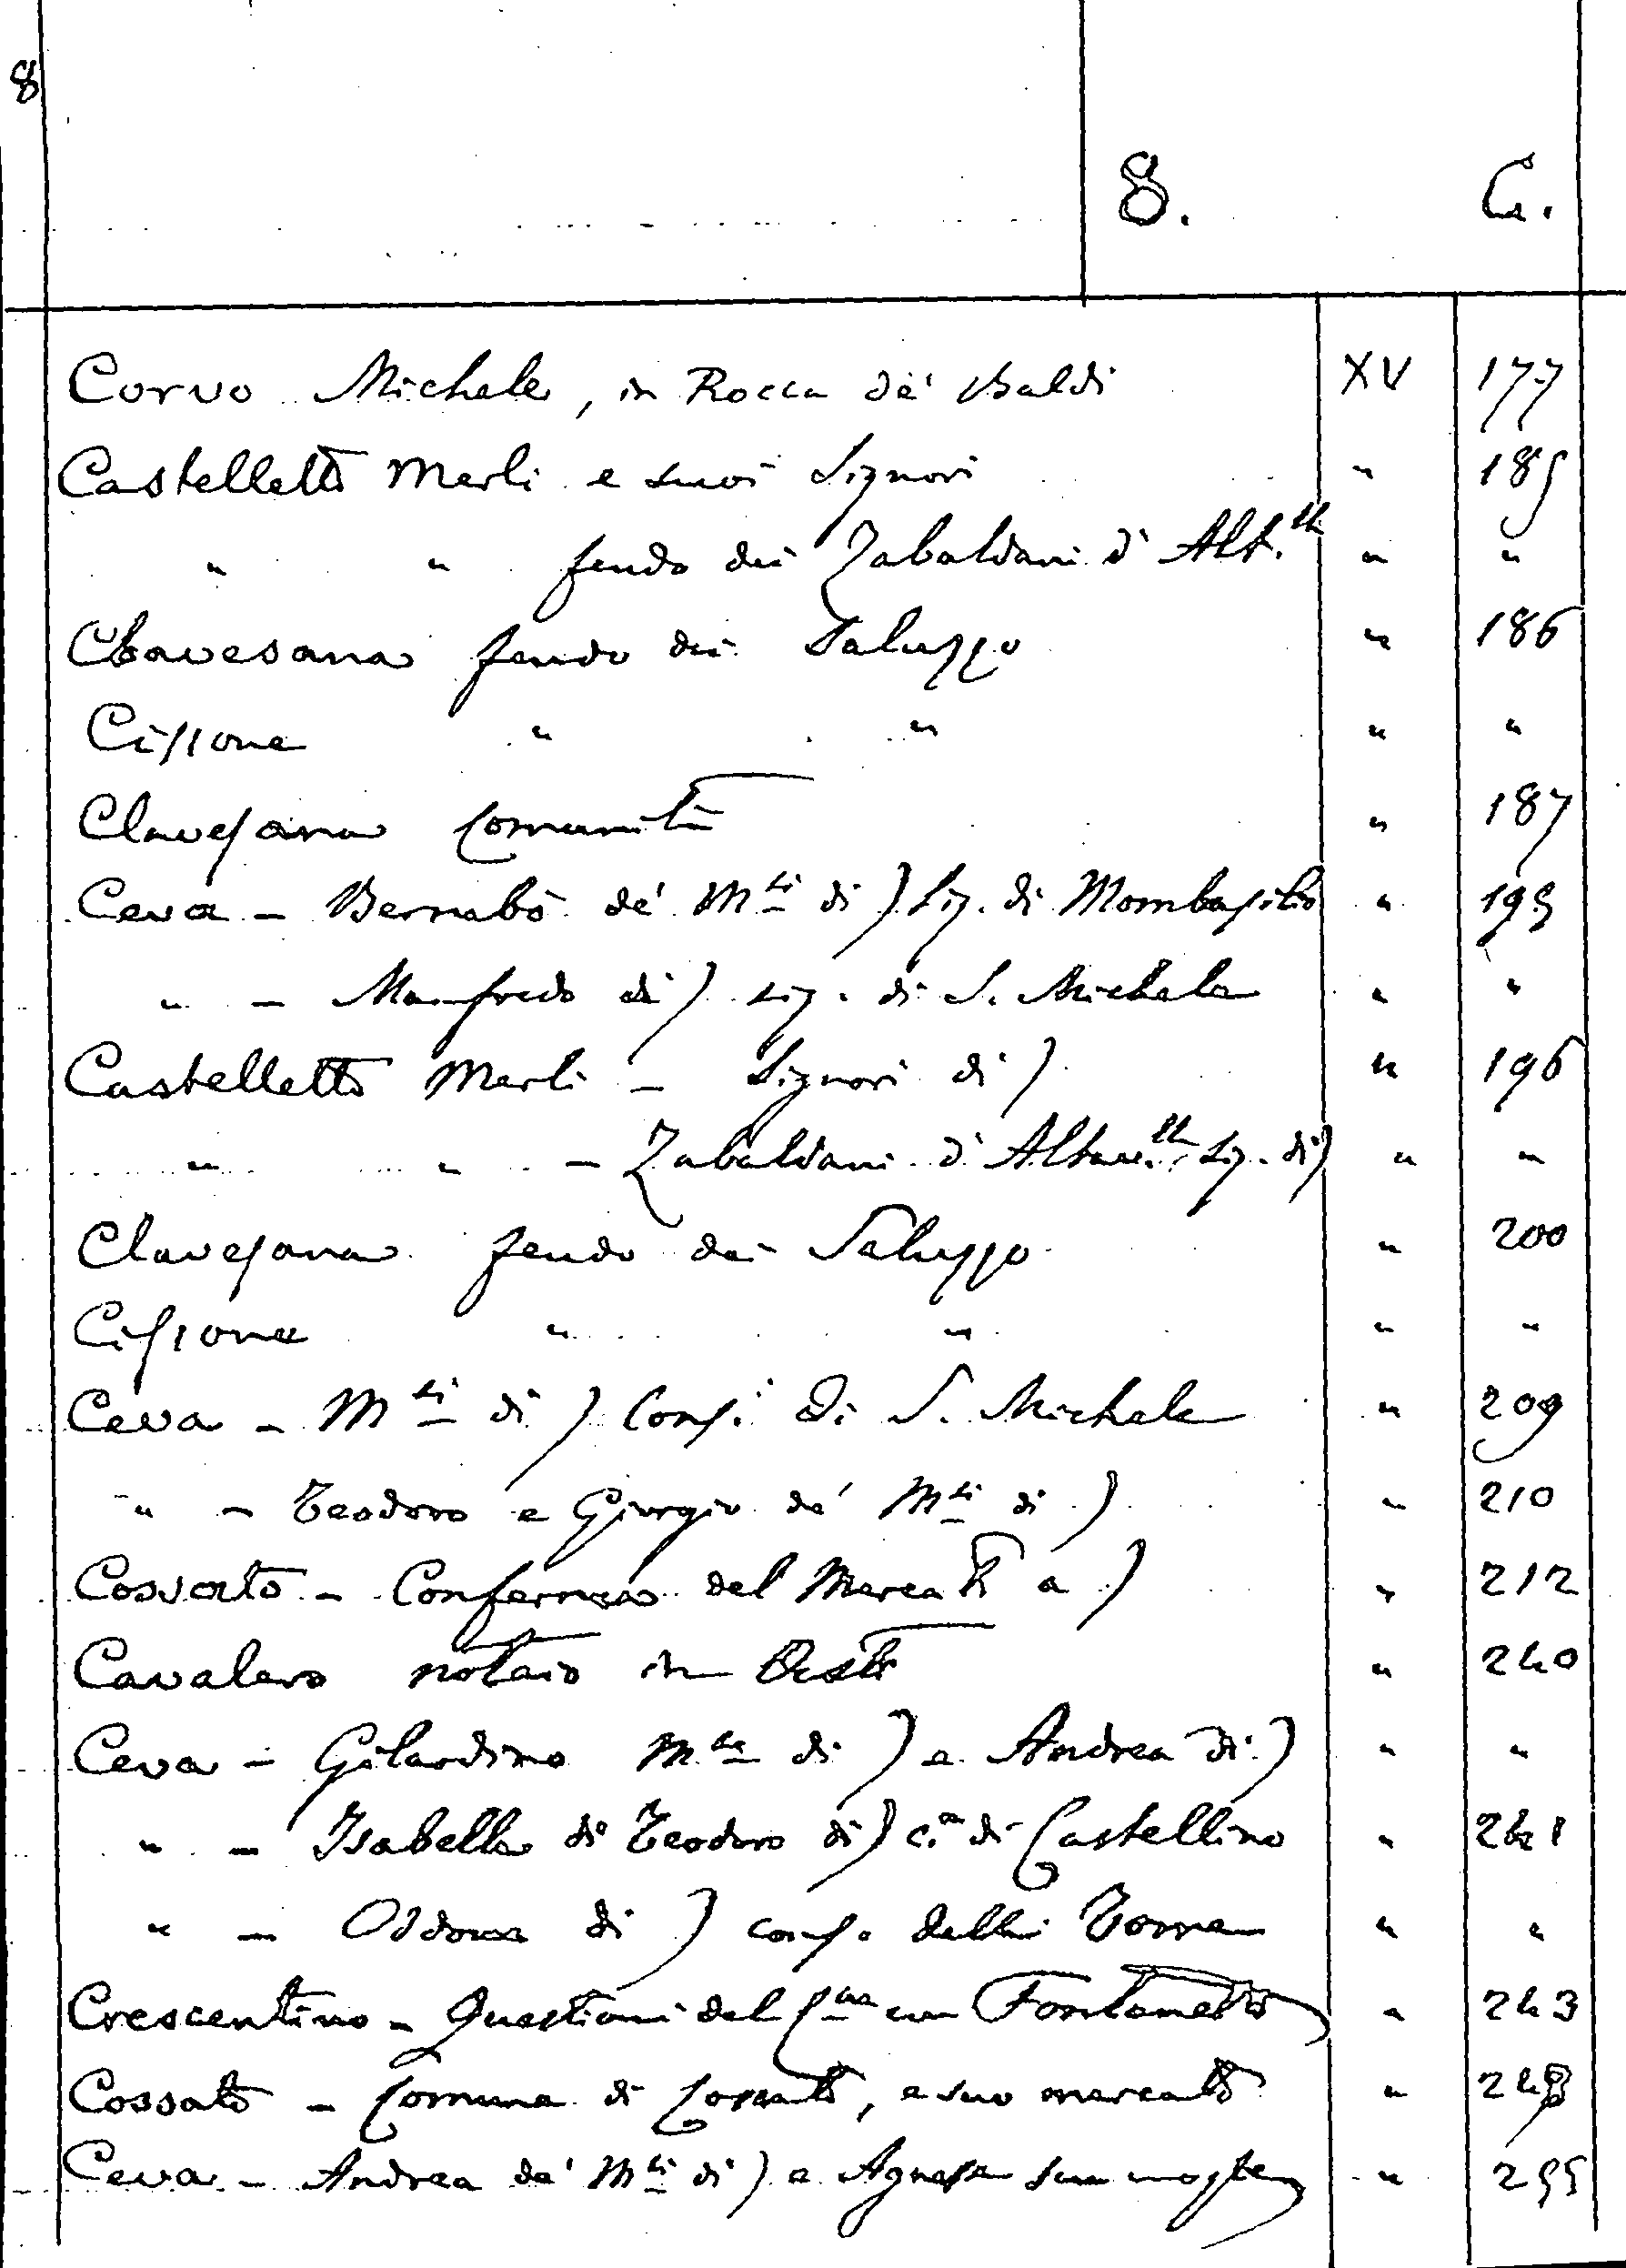 8
8. C.
Corvo Michele, in Rocca de' Baldi XV 177
Castelletto Merli e suoi Signori " 185
" " feudo dei Zabaldani d' Alt.lla " "
Clavesana feudo dei Saluzzo " 186
Cissone " " " "
Clavesana Comunità " 187
Ceva - Bernabò de' M.ti di ) Sig. di Mombasilio " 195
" - Manfredo di ) sig. di S. Michele " "
Castelletto Merli - Signori di ) " 196
" " - Zabaldani d' Altav.lla Sig. di ) " "
Clavesana feudo dei Saluzzo " 200
Cissone " " " "
Ceva - M.ti di ) Cons.i di S. Michele " 209
" - Teodoro e Giorgio de' M.ti di ) " 210
Cossato - Conferma del Mercato a ) " 212
Cavalero notaio in Asti " 240
Ceva - Gilardino M.se di ) e Andrea di ) " "
" - Isabella di Teodoro di ) C.a di Castellino " 241
" - Oddone di ) cons. della Torre " "
Crescentino - Questioni del C.ne con Fontanetto " 243
Cossato - Comune di Cossato, e suo mercato " 248
Ceva - Andrea de' M.ti di ) e Agnese sua moglie " 255